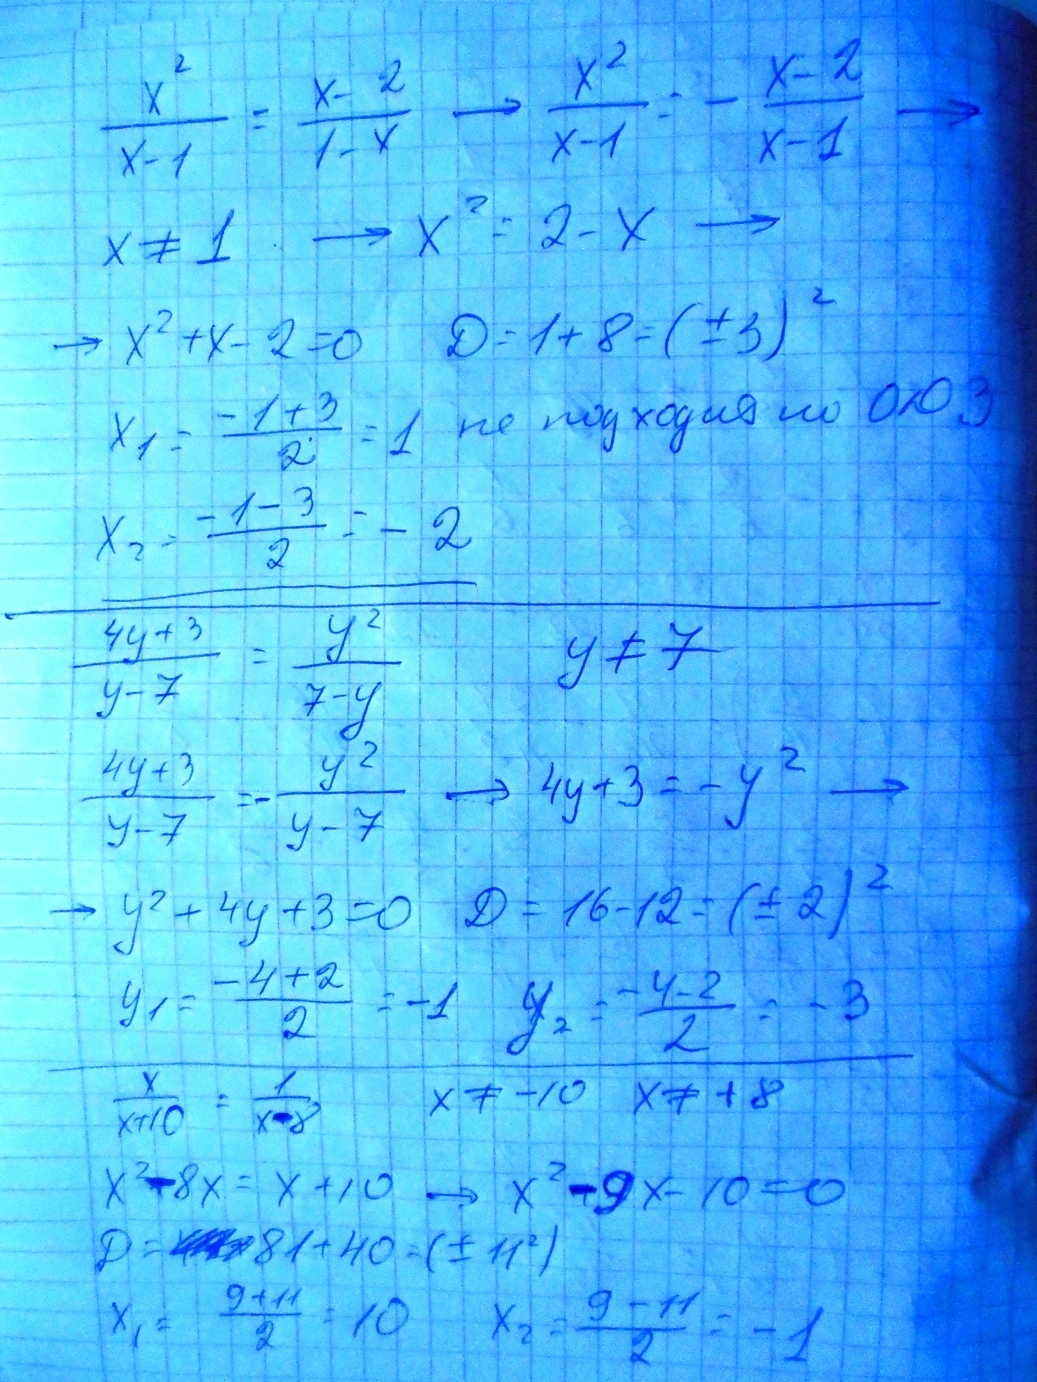 x²/(x-1) = (x-2)/(1-x) → x²/(x-1) = - (x-2)/(x-1) →
x ≠ 1 → x² = 2-x →
→ x²+x-2=0 D=1+8=(±3)²
x₁ = (-1+3)/2 = 1 не подходит по ОДЗ
x₂ = (-1-3)/2 = -2
(4y+3)/(y-7) = y²/(7-y) y ≠ 7
(4y+3)/(y-7) = - y²/(y-7) → 4y+3=-y² →
→ y²+4y+3=0 D=16-12=(±2)²
y₁ = (-4+2)/2 = -1 y₂ = (-4-2)/2 = -3
x/(x+10) = 1/(x-8) x ≠ -10 x ≠ +8
x²-8x=x+10 → x²-9x-10=0
D= 81+40=(±11²)
x₁ = (9+11)/2 = 10 x₂ = (9-11)/2 = -1